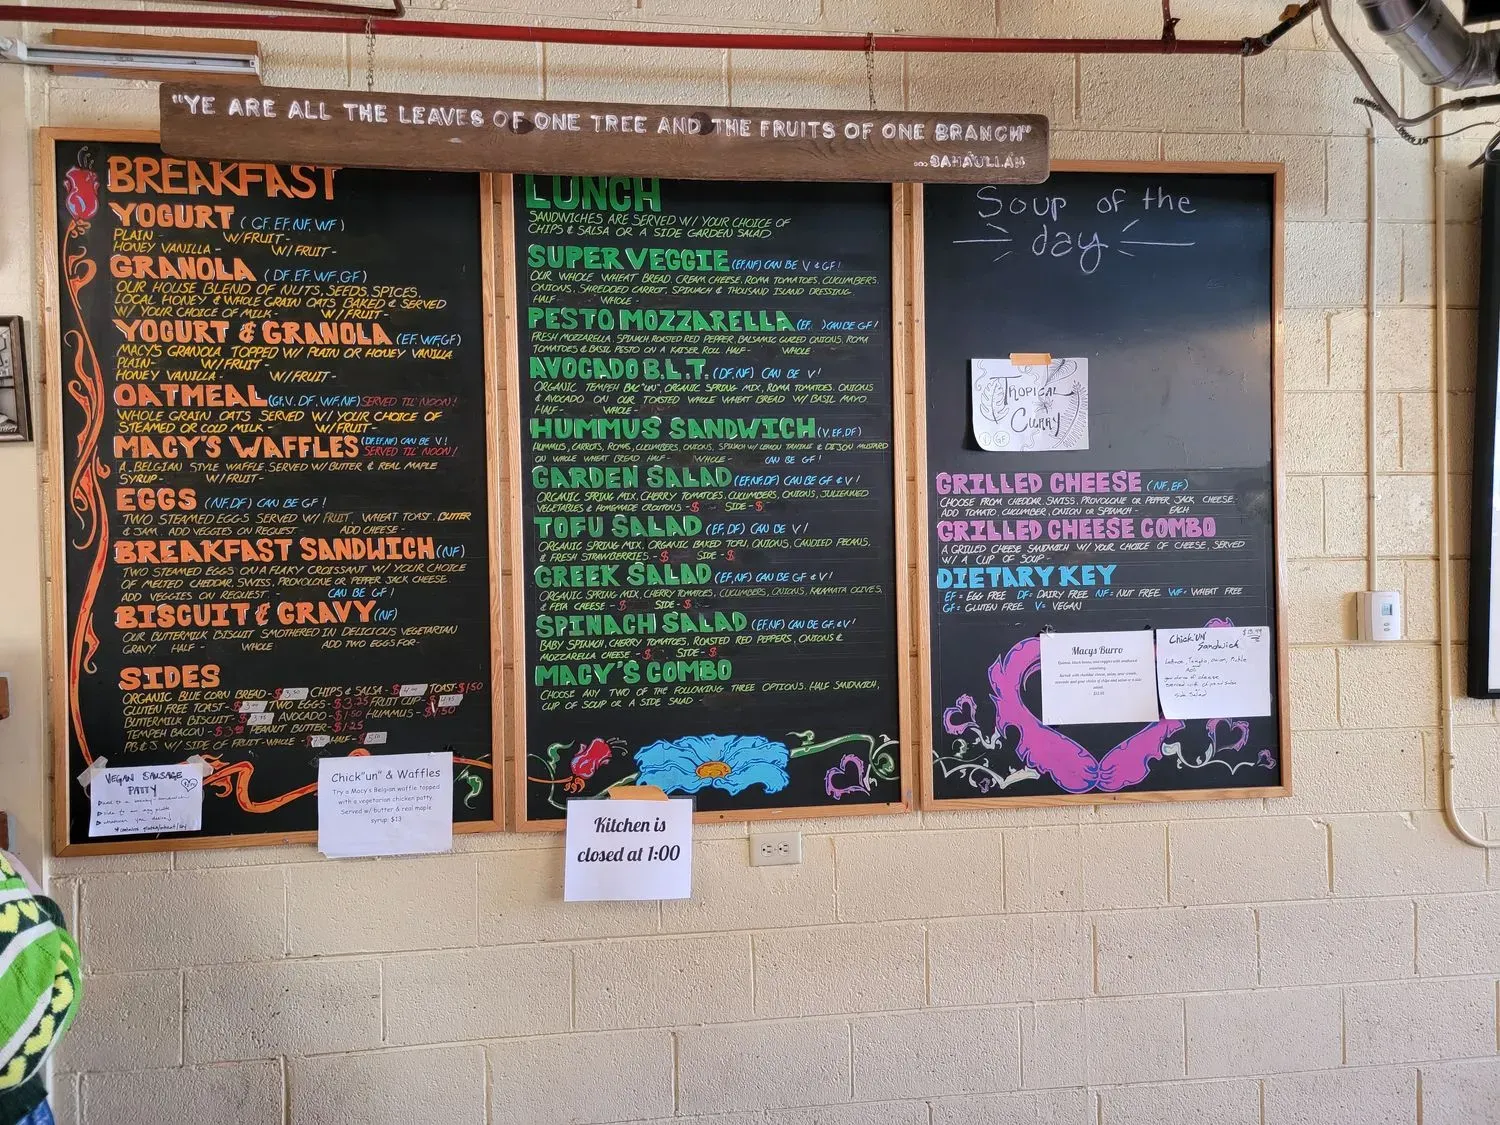 "YE ARE ALL THE LEAVES OF ONE TREE AND THE FRUITS OF ONE BRANCH"
...BAHA'ULLAH
BREAKFAST
YOGURT (GF, EF, NF, WF)
PLAIN - W/FRUIT -
HONEY VANILLA - W/FRUIT -
GRANOLA (DF, EF, WF, GF)
OUR HOUSE BLEND OF NUTS, SEEDS, SPICES,
LOCAL HONEY & WHOLE GRAIN OATS BAKED & SERVED
W/ YOUR CHOICE OF MILK - W/FRUIT -
YOGURT & GRANOLA (EF, WF, GF)
MACY'S GRANOLA TOPPED W/ PLAIN OR HONEY VANILLA
PLAIN - W/FRUIT -
HONEY VANILLA - W/FRUIT -
OATMEAL (GF, V, DF, WF, NF) SERVED TIL NOON!
WHOLE GRAIN OATS SERVED W/ YOUR CHOICE OF
STEAMED OR COLD MILK - W/FRUIT -
MACY'S WAFFLES (DF, EF, NF) CAN BE V! SERVED TIL NOON!
A BELGIAN STYLE WAFFLE SERVED W/ BUTTER & REAL MAPLE
SYRUP - W/FRUIT -
EGGS (NF, DF) CAN BE GF!
TWO STEAMED EGGS SERVED W/ FRUIT, WHEAT TOAST, BUTTER
& JAM. ADD VEGGIES ON REQUEST. ADD CHEESE -
BREAKFAST SANDWICH (NF)
TWO STEAMED EGGS ON A FLAKY CROISSANT W/ YOUR CHOICE
OF MELTED CHEDDAR, SWISS, PROVOLONE OR PEPPER JACK CHEESE.
ADD VEGGIES ON REQUEST. - CAN BE GF!
BISCUIT & GRAVY (NF)
OUR BUTTERMILK BISCUIT SMOTHERED IN DELICIOUS VEGETARIAN
GRAVY. HALF - WHOLE ADD TWO EGGS FOR -
SIDES
ORGANIC BLUE CORN BREAD - $3.50 CHIPS & SALSA - TOAST - $1.50
GLUTEN FREE TOAST - $ TWO EGGS - $3.25 FRUIT CUP - $
BUTTERMILK BISCUIT - $3.95 AVOCADO - $1.50 HUMMUS - $1.50
TEMPEH BACON - $ PEANUT BUTTER - $1.25
PB & J W/ SIDE OF FRUIT - WHOLE - HALF -
VEGAN SAUSAGE
PATTY
Chick"un" & Waffles
Try a Macy's Belgian waffle topped
with a vegetarian chicken patty.
Served w/ butter & real maple
syrup. $13
LUNCH
SANDWICHES ARE SERVED W/ YOUR CHOICE OF
CHIPS & SALSA OR A SIDE GARDEN SALAD
SUPER VEGGIE (EF, NF) CAN BE V & GF!
OUR WHOLE WHEAT BREAD, CREAM CHEESE, ROMA TOMATOES, CUCUMBERS,
ONIONS, SHREDDED CARROT, SPINACH & THOUSAND ISLAND DRESSING.
HALF - WHOLE -
PESTO MOZZARELLA (EF, ) CAN BE GF!
FRESH MOZZARELLA, SPINACH, ROASTED RED PEPPER, BALSAMIC GLAZED ONIONS, ROMA
TOMATOES & BASIL PESTO ON A KAISER ROLL. HALF - WHOLE
AVOCADO B.L.T. (DF, NF) CAN BE V!
ORGANIC TEMPEH BAC"UN", ORGANIC SPRING MIX, ROMA TOMATOES, ONIONS
& AVOCADO ON OUR TOASTED WHOLE WHEAT BREAD W/ BASIL MAYO.
HALF - WHOLE -
HUMMUS SANDWICH (V, EF, DF)
HUMMUS, CARROTS, ROMAS, CUCUMBERS, ONIONS, SPINACH W/ LEMON & DIJON MUSTARD
ON WHOLE WHEAT BREAD. HALF - WHOLE - CAN BE GF!
GARDEN SALAD (EF, NF, DF) CAN BE GF & V!
ORGANIC SPRING MIX, CHERRY TOMATOES, CUCUMBERS, ONIONS, JULIENNED
VEGETABLES & HOMEMADE CROUTONS - $ SIDE - $
TOFU SALAD (EF, DF) CAN BE V!
ORGANIC SPRING MIX, ORGANIC BAKED TOFU, ONIONS, CANDIED PECANS,
& FRESH STRAWBERRIES - $ SIDE - $
GREEK SALAD (EF, NF) CAN BE GF & V!
ORGANIC SPRING MIX, CHERRY TOMATOES, CUCUMBERS, ONIONS, KALAMATA OLIVES,
& FETA CHEESE - $ SIDE - $
SPINACH SALAD (EF, NF) CAN BE GF & V!
BABY SPINACH, CHERRY TOMATOES, ROASTED RED PEPPERS, ONIONS &
MOZZARELLA CHEESE - $ SIDE - $
MACY'S COMBO
CHOOSE ANY TWO OF THE FOLLOWING THREE OPTIONS. HALF SANDWICH,
CUP OF SOUP OR A SIDE SALAD -
Kitchen is
closed at 1:00
Soup of the
day
Tropical
Curry
GF
GRILLED CHEESE (NF, EF)
CHOOSE FROM CHEDDAR, SWISS, PROVOLONE OR PEPPER JACK CHEESE.
ADD TOMATO, CUCUMBER, ONION OR SPINACH - EACH
GRILLED CHEESE COMBO
A GRILLED CHEESE SANDWICH W/ YOUR CHOICE OF CHEESE, SERVED
W/ A CUP OF SOUP -
DIETARY KEY
EF = EGG FREE DF = DAIRY FREE NF = NUT FREE WF = WHEAT FREE
GF = GLUTEN FREE V = VEGAN
Macys Burro
Chick'UN'
Sandwich
Lettuce, Tomato, onion, Pickle
your choice of cheese
served with chips and salsa
Side Salad